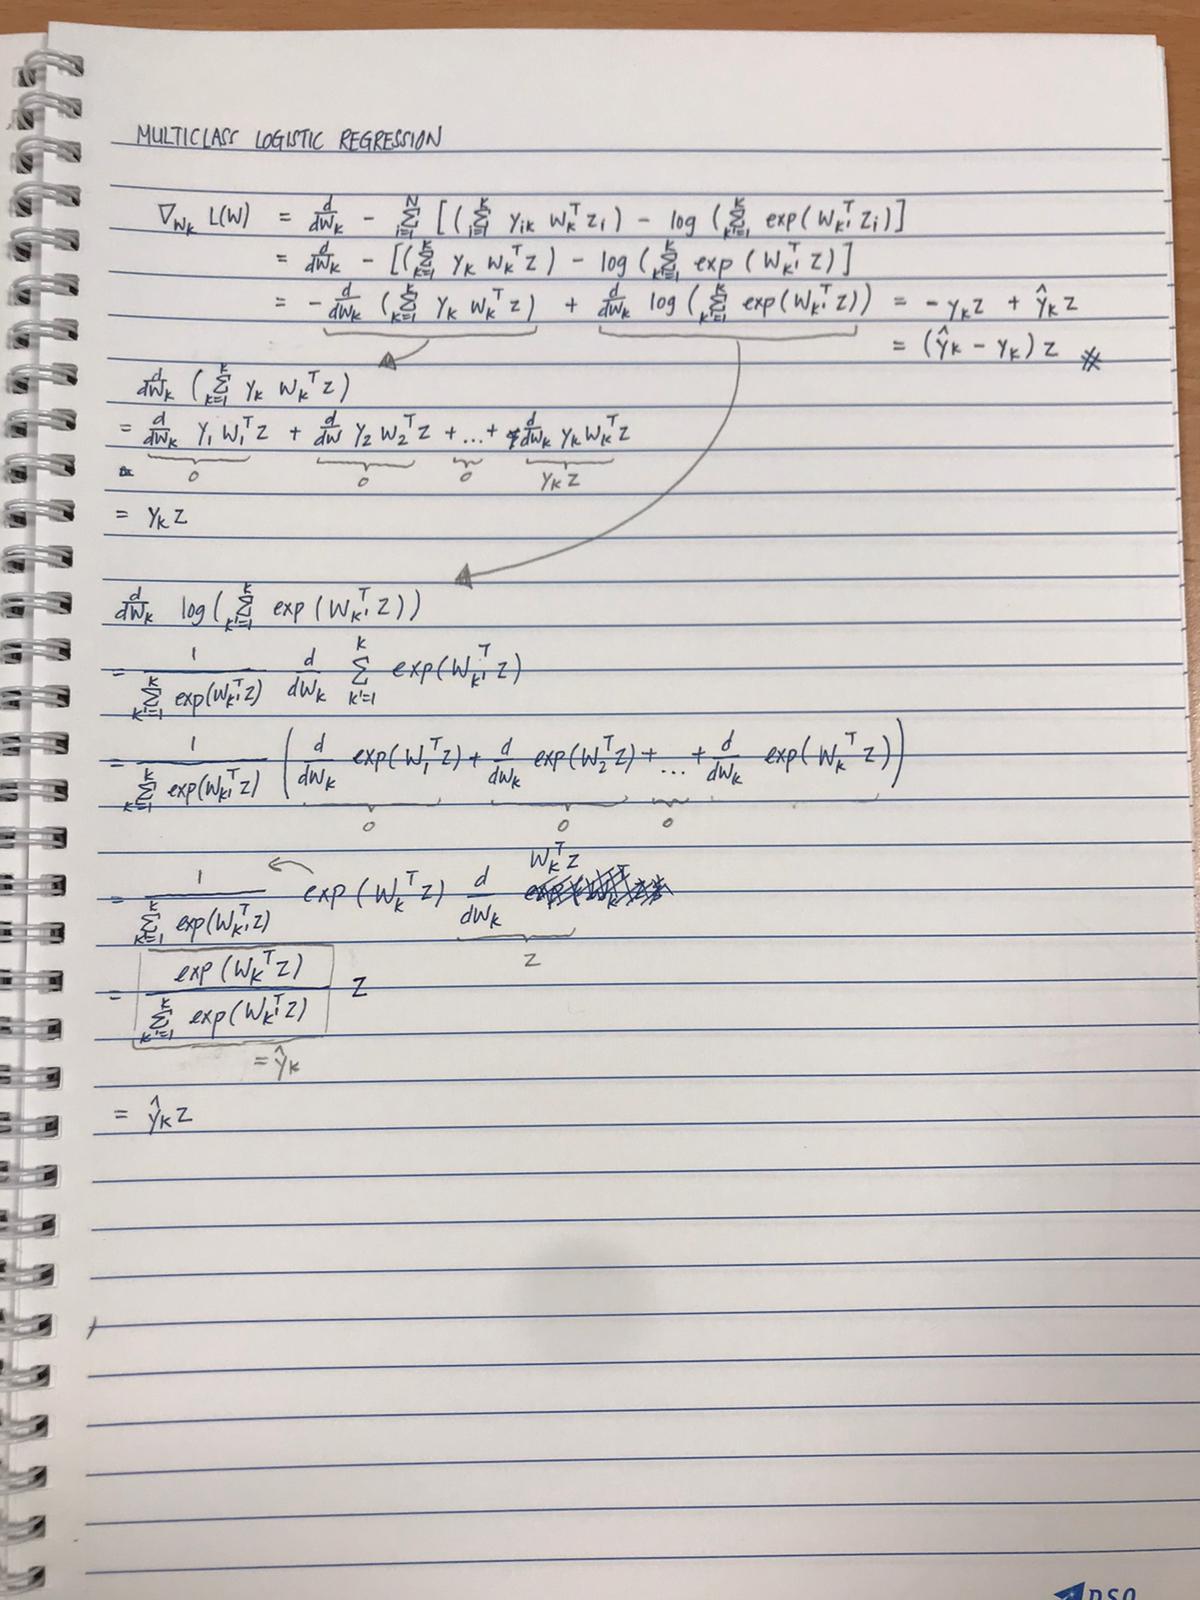 MULTICLASS LOGISTIC REGRESSION
∇_{W_k} L(W) = d/dW_k − Σ_{i=1}^{N} [(Σ_{i=1}^{K} y_{ik} W_k^T z_i) − log (Σ_{k'=1}^{K} exp(W_{k'}^T z_i)]
= d/dW_k − [(Σ_{k=1}^{K} y_k W_k^T z) − log (Σ_{k'=1}^{K} exp (W_{k'}^T z)]
= − d/dW_k (Σ_{k=1}^{K} y_k W_k^T z) + d/dW_k log (Σ_{k'=1}^{K} exp(W_{k'}^T z)) = − y_k z + ŷ_k z
= (ŷ_k − y_k) z
d/dW_k (Σ_{k=1}^{K} y_k W_k^T z)
= d/dW_k y_1 W_1^T z + d/dW y_2 W_2^T z + ... + d/dW_k y_k W_k^T z
0 0 0 y_k z
= y_k z
d/dW_k log (Σ_{k'=1}^{K} exp (W_{k'}^T z))
= 1/(Σ_{k'=1}^{K} exp(W_{k'}^T z)) d/dW_k Σ_{k'=1}^{K} exp(W_{k'}^T z)
= 1/(Σ_{k'=1}^{K} exp(W_{k'}^T z)) (d/dW_k exp(W_1^T z) + d/dW_k exp(W_2^T z) + ... + d/dW_k exp(W_k^T z))
0 0 0
= 1/(Σ_{k'=1}^{K} exp(W_{k'}^T z)) exp (W_k^T z) d/dW_k W_k^T z
z
= exp (W_k^T z)/(Σ_{k'=1}^{K} exp(W_{k'}^T z)) z
= ŷ_k
= ŷ_k z
DSO